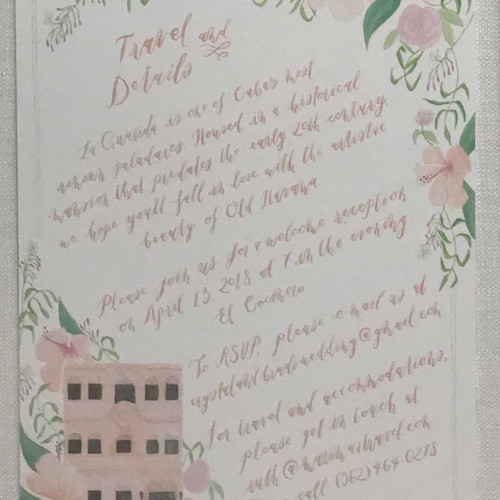 Travel and
Details
La Guarida is one of Cuba's most
renown paladares. Housed in a historical
mansion that predates the early 20th century,
we hope you'll fall in love with the artistic
beauty of Old Havana
Please join us for a welcome reception
on April 13, 2018 at 7 in the evening
El Cocinero
To RSVP, please e-mail us at
crystalandbradswedding@gmail.com
For travel and accommodations,
please get in touch at
call (562)464-0278